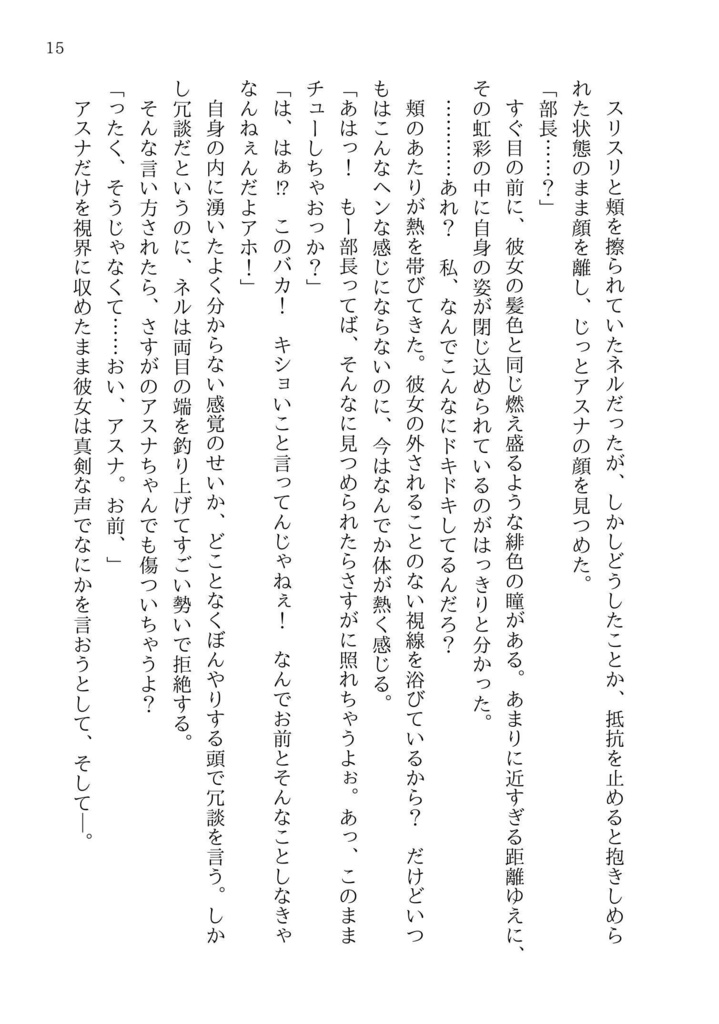 15
　スリスリと頬を擦られていたネルだったが、しかしどうしたことか、抵抗を止めると抱きしめら
れた状態のまま顔を離し、じっとアスナの顔を見つめた。
「部長……？」
　すぐ目の前に、彼女の髪色と同じ燃え盛るような緋色の瞳がある。あまりに近すぎる距離ゆえに、
その虹彩の中に自身の姿が閉じ込められているのがはっきりと分かった。
　…………あれ？　私、なんでこんなにドキドキしてるんだろ？
　頬のあたりが熱を帯びてきた。彼女の外されることのない視線を浴びているから？　だけどいつ
もはこんなヘンな感じにならないのに、今はなんでか体が熱く感じる。
「あはっ！　もー部長ってば、そんなに見つめられたらさすがに照れちゃうよぉ。あっ、このまま
チューしちゃおっか？」
「は、はぁ⁉　このバカ！　キショいこと言ってんじゃねぇ！　なんでお前とそんなことしなきゃ
なんねぇんだよアホ！」
　自身の内に湧いたよく分からない感覚のせいか、どことなくぼんやりする頭で冗談を言う。しか
し冗談だというのに、ネルは両目の端を釣り上げてすごい勢いで拒絶する。
　そんな言い方されたら、さすがのアスナちゃんでも傷ついちゃうよ？
「ったく、そうじゃなくて……おい、アスナ。お前、」
　アスナだけを視界に収めたまま彼女は真剣な声でなにかを言おうとして、そして―。